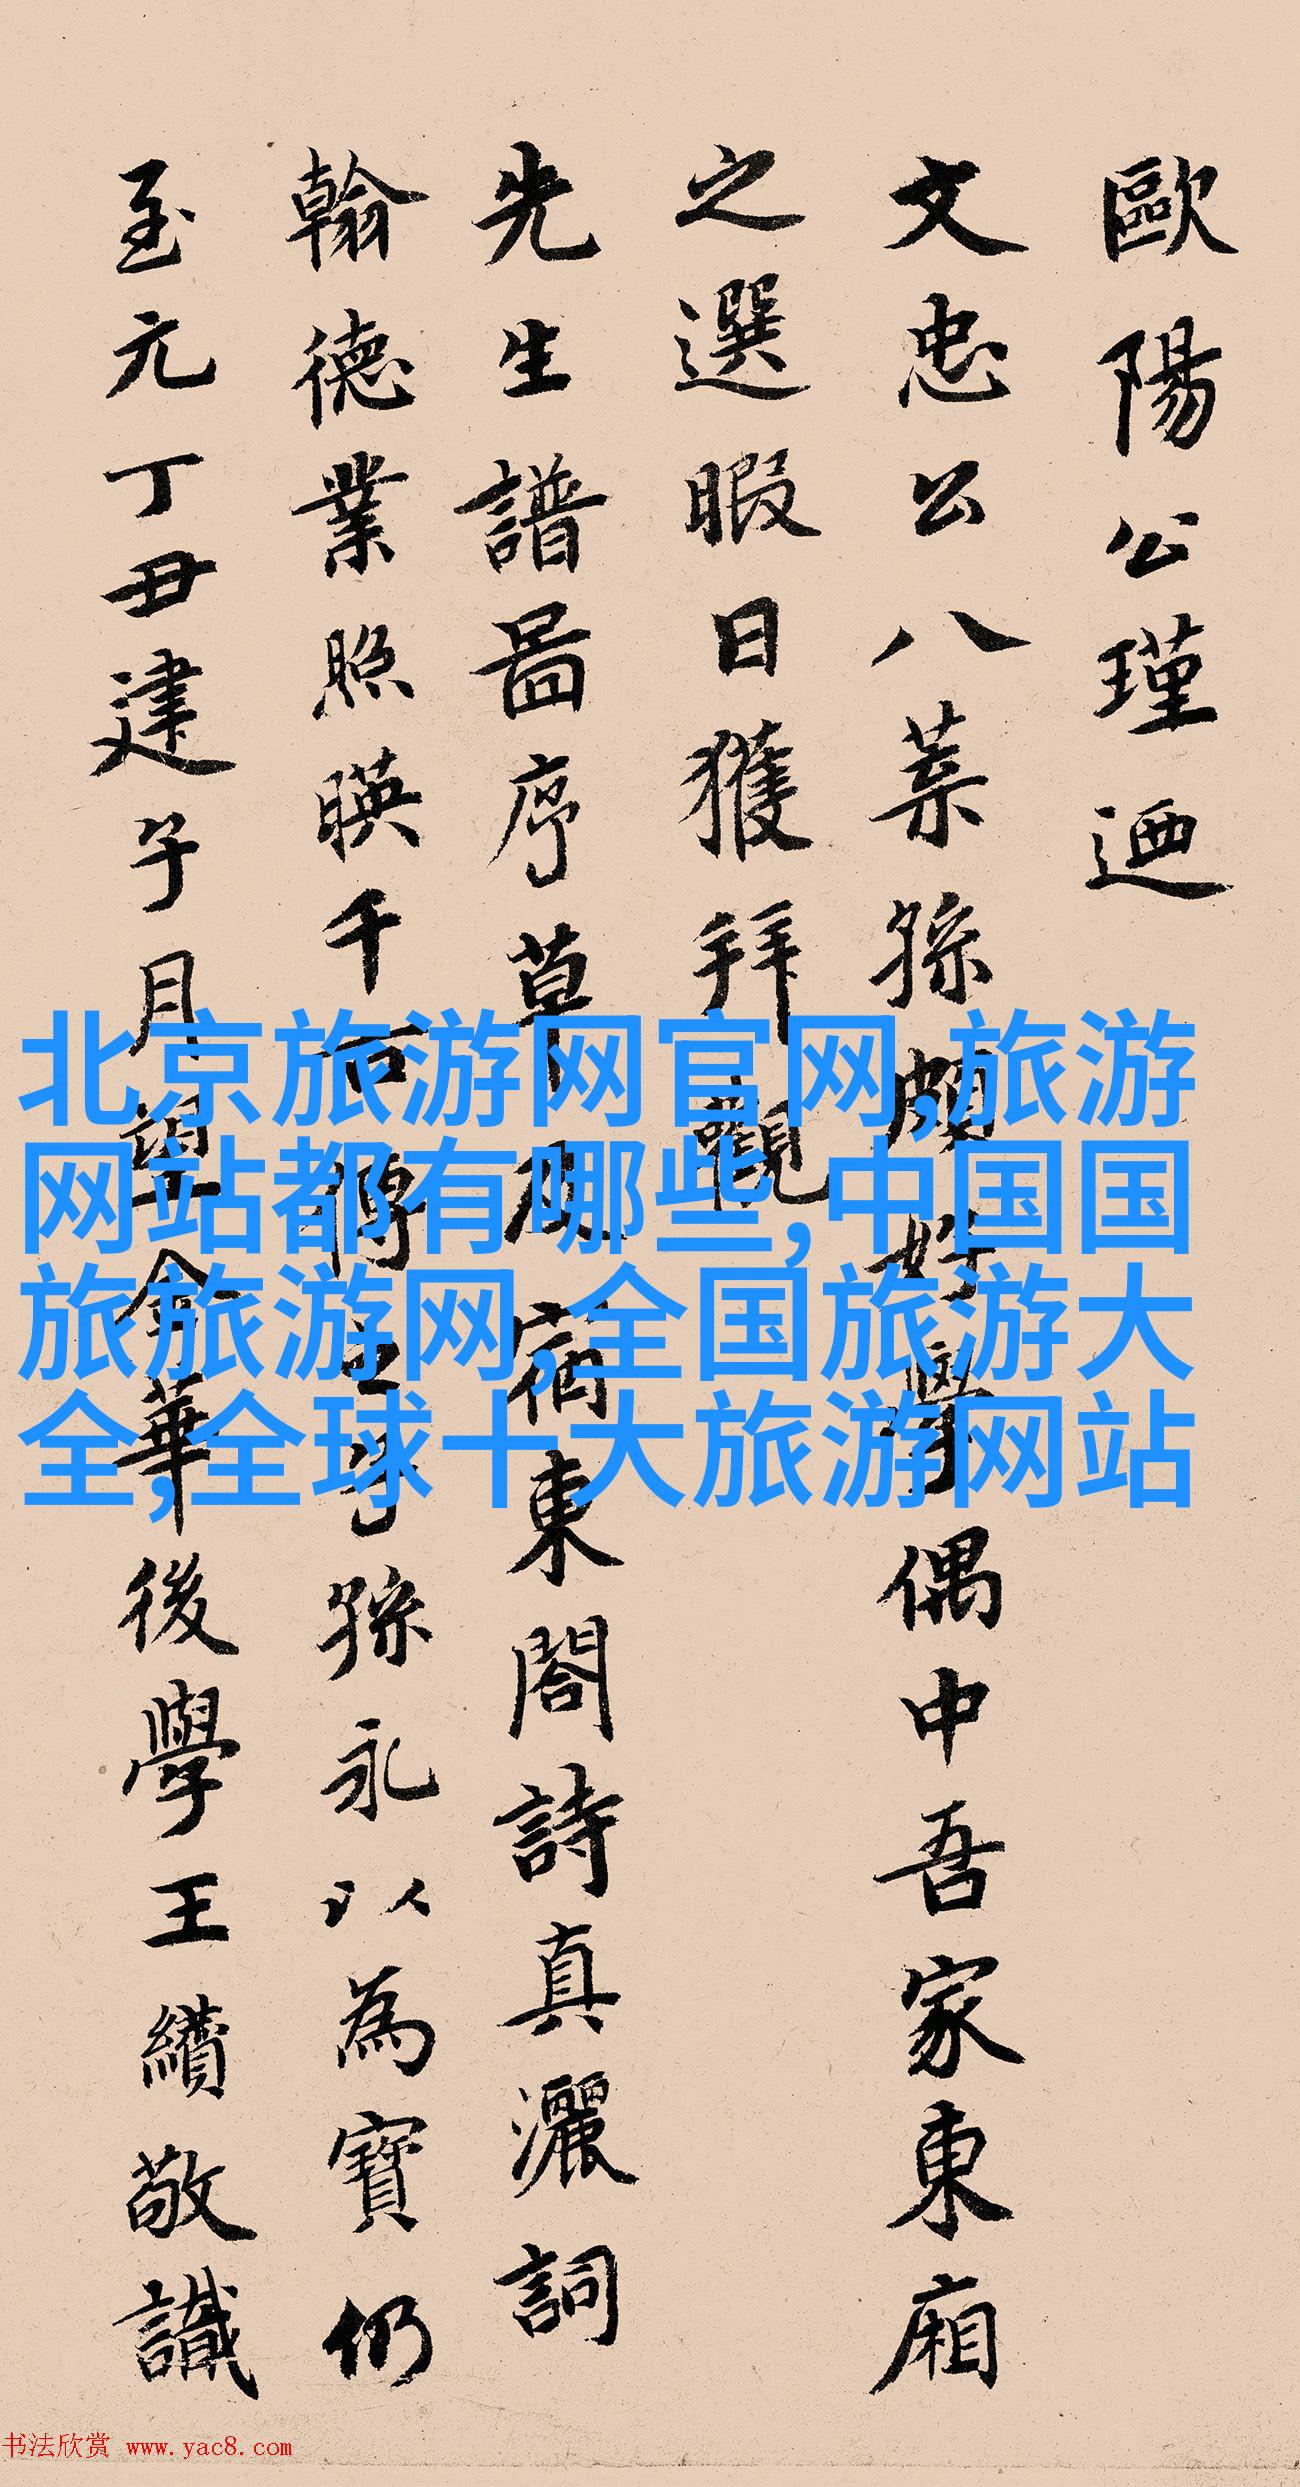 歐陽公瑾迺
文忠公八葉孫頗好學偶中吾家東廂
之選暇日獲拜觀
先生譜圖序草及宿東閣詩真灑詞
翰德業照暎千古傳之子孫永以為寶仍
至元丁丑建子月望金華後學王績敬識
北京旅游网官网,旅游
网站都有哪些,中国国
旅旅游网,全国旅游大
全,全球十大旅游网站
书法欣赏 www.yac8.com